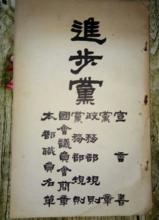 進步黨
宣言書
黨章
政務部規則
黨務部規則
國會議員會簡章
本部職員名單